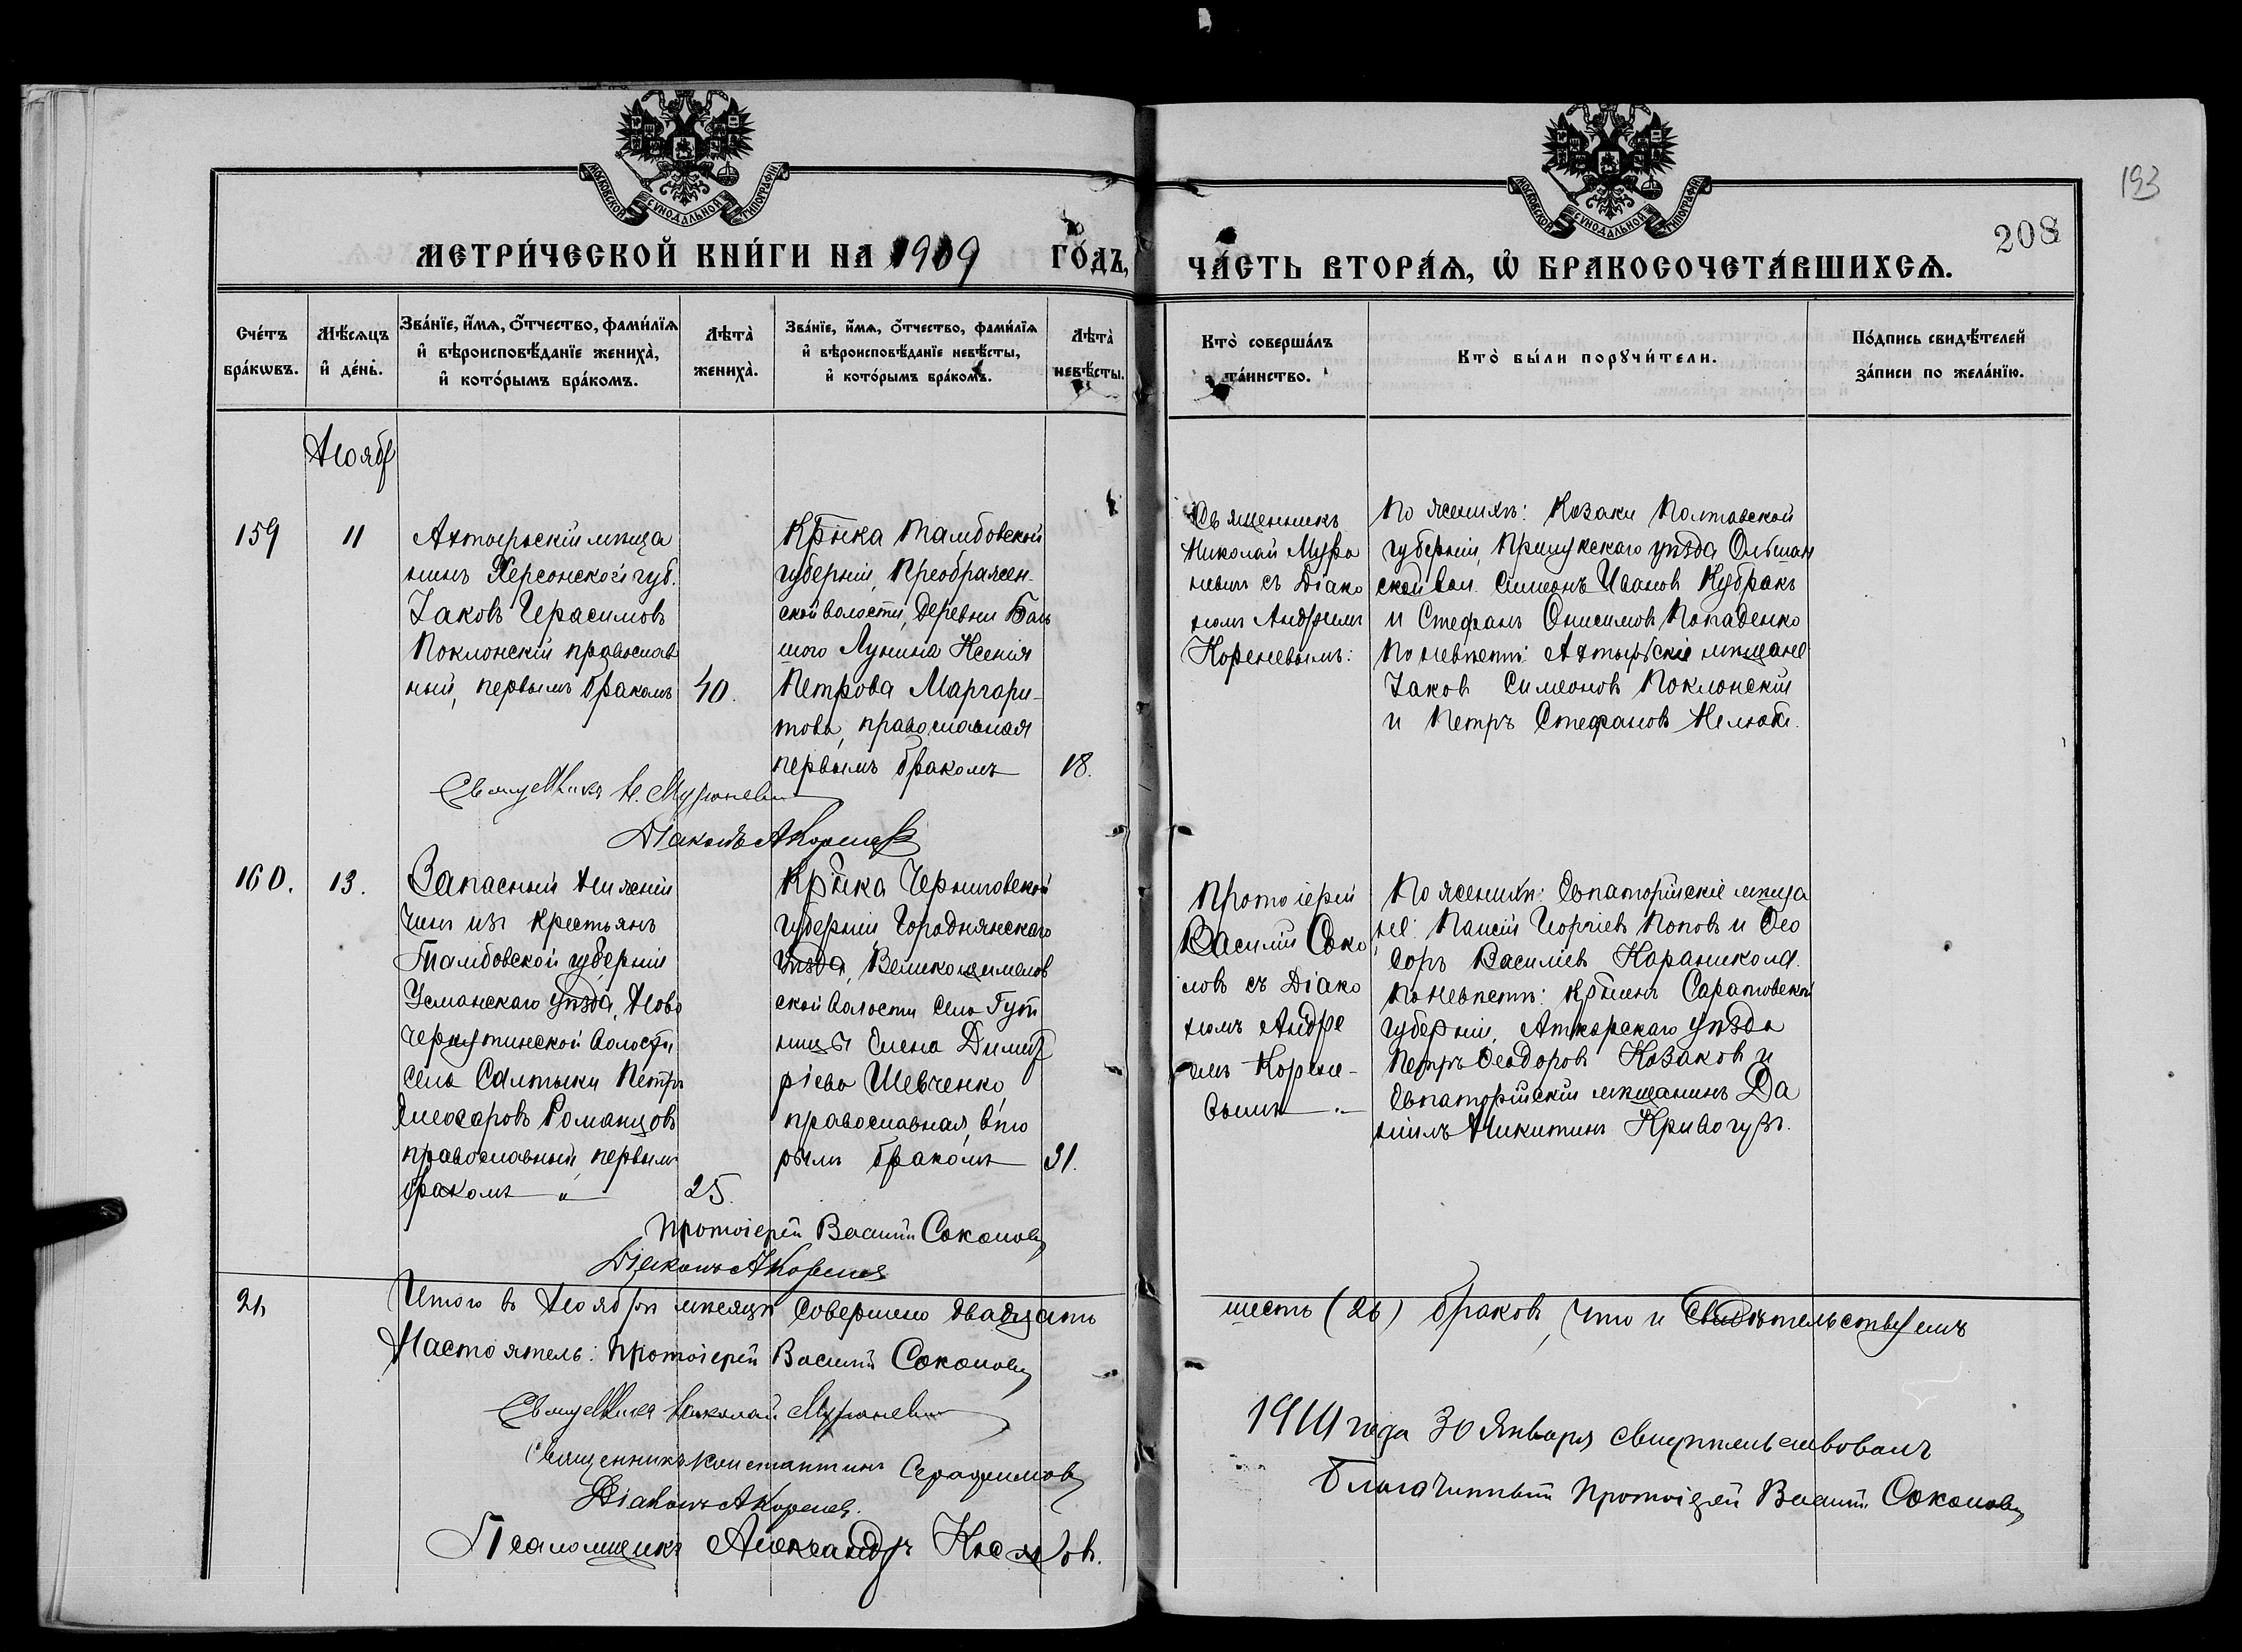 193
208
МОСКОВСКОЙ СѴНОДАЛЬНОЙ ТИПОГРАФІИ.
МЕТРИ́ЧЕСКОЙ КНИ́ГИ НА 1909 ГО́ДЪ,
МОСКОВСКОЙ СѴНОДАЛЬНОЙ ТИПОГРАФІИ.
ЧА́СТЬ ВТОРА́Ѧ, Ѡ҆ БРАКОСОЧЕТА́ВШИХСѦ.
Сче́тъ
бра́кѡвъ.
Мѣ́сѧцъ
и҆ де́нь.
Зва́нїе, и҆́мѧ, ѻ҆́тчество, фами́лїѧ
и҆ вѣроисповѣ́данїе жениха̀,
и҆ кото́рымъ бра́комъ.
Лѣта̀
жениха̀.
Зва́нїе, и҆́мѧ, ѻ҆́тчество, фами́лїѧ
и҆ вѣроисповѣ́данїе невѣ́сты,
и҆ кото́рымъ бра́комъ.
Лѣта̀
невѣ́сты.
Кто̀ соверша́лъ
та́инство.
Кто̀ бы́ли порꙋчи́тели.
По́дпись свидѣ́телей
за́писи по жела́нїю.
Ноябр
159
11
Ахтырскій мѣща
нинъ Херсонской губ.
Іаковъ Герасимовъ
Поклонскій православ
ный, первымъ бракомъ
40.
Кр̃нка Тамбовской
губерніи, Преображен-
ской волости, деревни Боль
шого Лунина Ксенія
Петрова Маргари-
това, православная
первымъ бракомъ
18.
Священникъ
Николай Муро
невичъ съ Діако
номъ Андреемъ
Кореневымъ:
По женихѣ: Козаки Полтавской
губерніи, Прилукскаго уѣзда Ольшан
ской вол. Симеонъ Ивановъ Кубракъ
и Стефанъ Онисимовъ Попаденко
По невѣстѣ: Ахтырскіе мѣщане
Іаковъ Симеоновъ Поклонскій
и Петръ Стефановъ
Священникъ Н. Муроневичъ
Діаконъ А Кореневъ
160.
13.
Запасный Нижній
чинъ изъ крестьянъ
Тамбовской губерніи
Усманскаго уѣзда, Ново
Черкутинской волости
села Салтыки Петръ
Елеазаровъ Романцовъ
православный, первымъ
бракомъ "
25.
Кр̃нка Черниговской
губерніи, Городнянскаго
уѣзда,
ской волости села Гут
ницы Елена Димит
ріева Шевченко,
православная, вто
рымъ бракомъ
31.
Протоіерей
Василій Соко
ловъ съ Діако
номъ Андре
емъ Корене-
вымъ
По женихѣ: Евпаторійскіе мѣща
не: Паисій Георгіевъ Поповъ и Ѳео
доръ Василіевъ
По невѣстѣ: кр̃нинъ Саратовской
губерніи, Аткарскаго уѣзда
Петръ Ѳеодоровъ Козаковъ и
Евпаторійскій мѣщанинъ Да
ніилъ Никитинъ Кривогузъ.
Протоіерей Василій Соколовъ
Діаконъ А Кореневъ
Итого въ Ноябрѣ мѣсяцѣ совершено двадцать
шесть (26) браковъ, что и свидѣтельствуемъ
Настоятель: Протоіерей Василій Соколовъ
Священникъ Николай Муроневичъ
Священникъ Константинъ Серафимовъ
Діаконъ А Кореневъ.
Псаломщикъ Александръ
года 30 Января свидѣтельствовалъ
Благочинный Протоіерей Василій Соколовъ